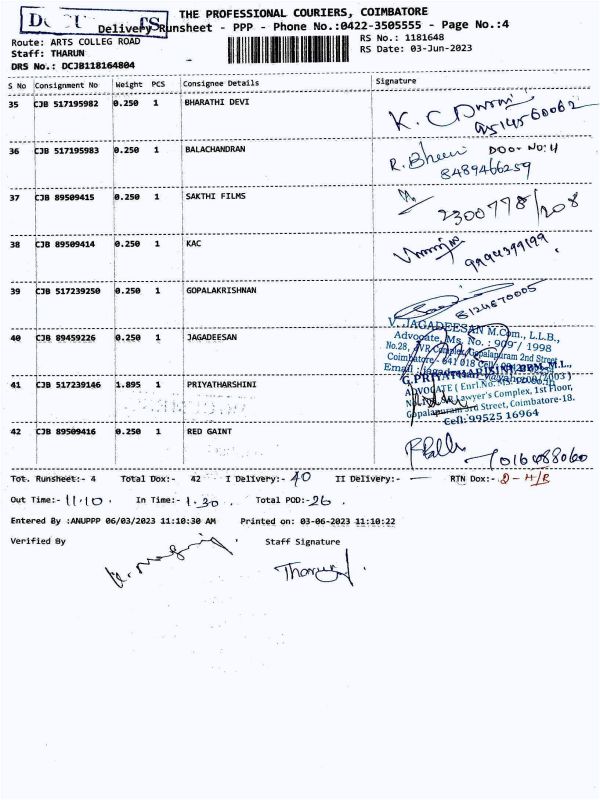 THE PROFESSIONAL COURIERS, COIMBATORE
Delivery Runsheet - PPP - Phone No.:0422-3505555 - Page No.:4
Route: ARTS COLLEG ROAD
Staff: THARUN
DRS No.: DCJB118164804
RS No.: 1181648
RS Date: 03-Jun-2023
S No Consignment No Weight PCS Consignee Details Signature
35 CJB 517195982 0.250 1 BHARATHI DEVI
36 CJB 517195983 0.250 1 BALACHANDRAN Door No: 4
8489466259
37 CJB 89509415 0.250 1 SAKTHI FILMS
2300778/208
38 CJB 89509414 0.250 1 KAC
9994399199
39 CJB 517239250 0.250 1 GOPALAKRISHNAN
8124670005
40 CJB 89459226 0.250 1 JAGADEESAN
V. JAGADEESAN M.Com., L.L.B.,
Advocate, Ms. No. : 909 / 1998
No.28, Complex, Gopalapuram 2nd Street
Coimbatore - 641 018
Email :
41 CJB 517239146 1.895 1 PRIYATHARSHINI
ADVOCATE ( Enrl.No.
Lawyer's Complex, 1st Floor,
Gopalapuram 3rd Street, Coimbatore-18.
Cell: 99525 16964
42 CJB 89509416 0.250 1 RED GAINT
7016488060
Tot. Runsheet:- 4 Total Dox:- 42 I Delivery:- 40 II Delivery:- — RTN Dox:-
Out Time:- 11.10. In Time:- 1.30. Total POD:- 26.
Entered By :ANUPPP 06/03/2023 11:10:30 AM Printed on: 03-06-2023 11:10:22
Verified By Staff Signature
Tharun